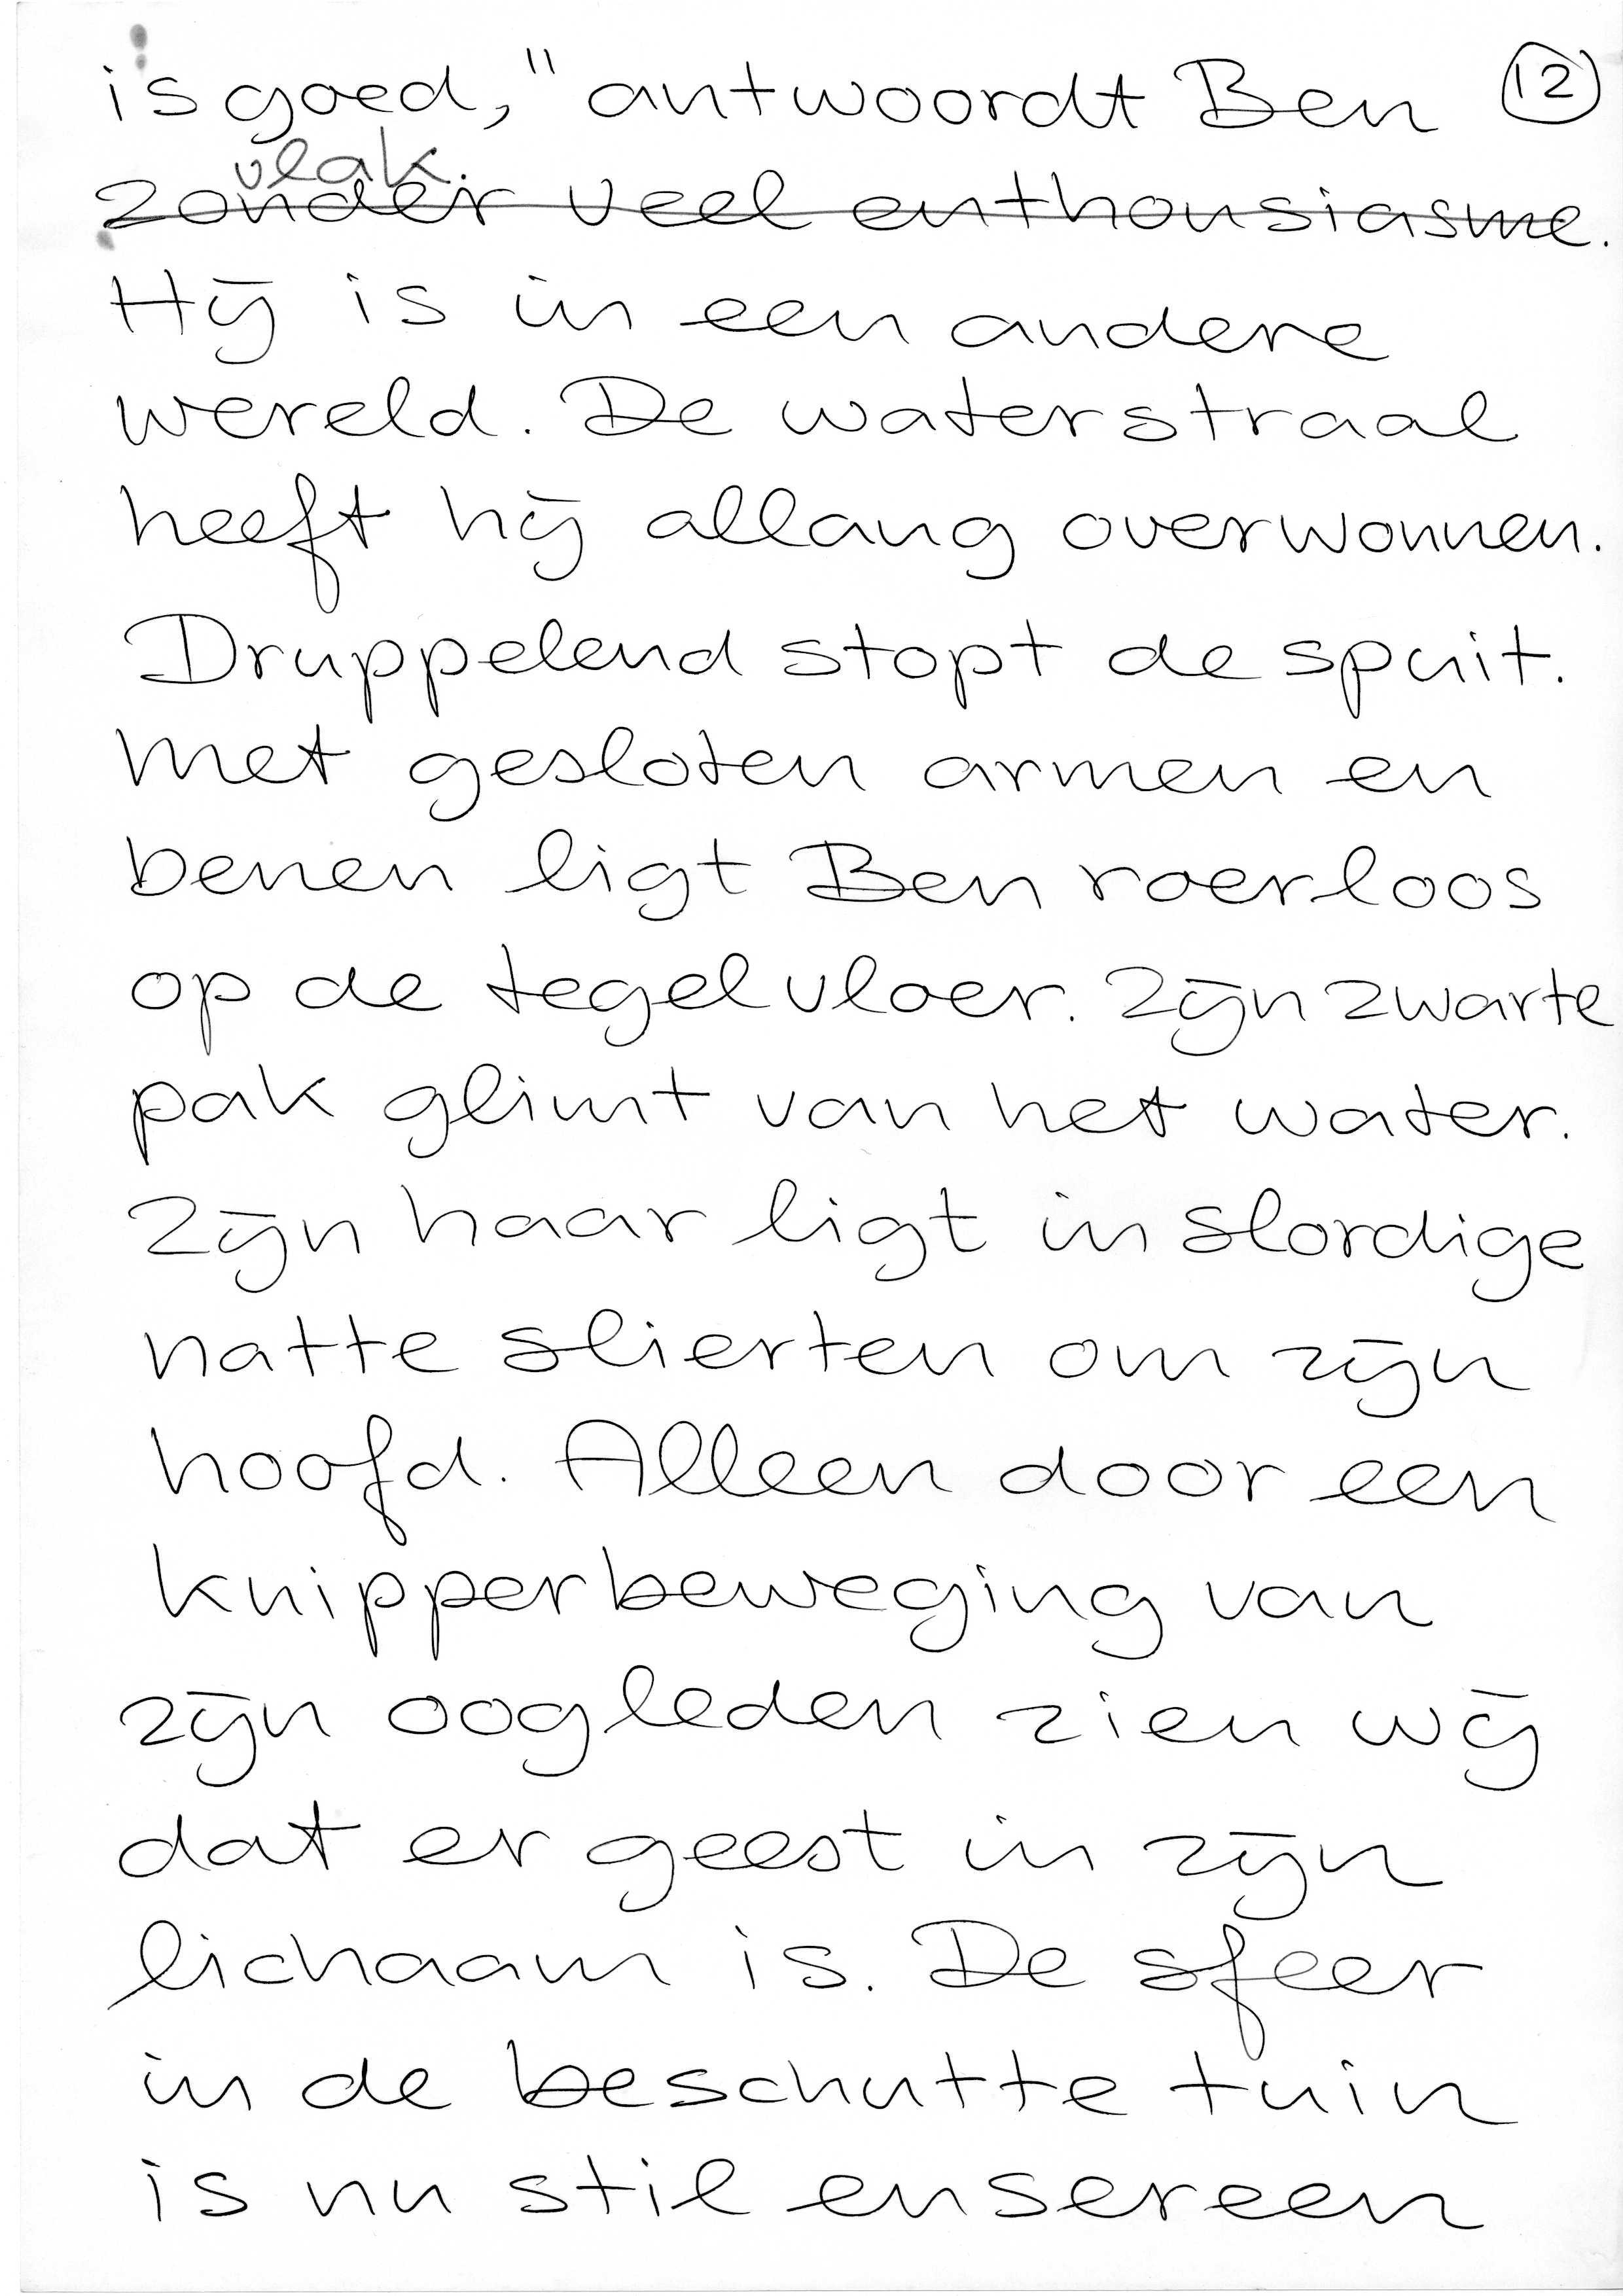 is goed," antwoordt Ben 12
vlak.
zonder veel enthousiasme.
Hij is in een andere
wereld. De waterstraal
heeft hij allang overwonnen.
Druppelend stopt de spuit.
Met gesloten armen en
benen ligt Ben roerloos
op de tegelvloer. Zijn zwarte
pak glimt van het water.
Zijn haar ligt in slordige
natte slierten om zijn
hoofd. Alleen door een
knipperbeweging van
zijn oogleden zien wij
dat er geest in zijn
lichaam is. De sfeer
in de beschutte tuin
is nu stil en sereen